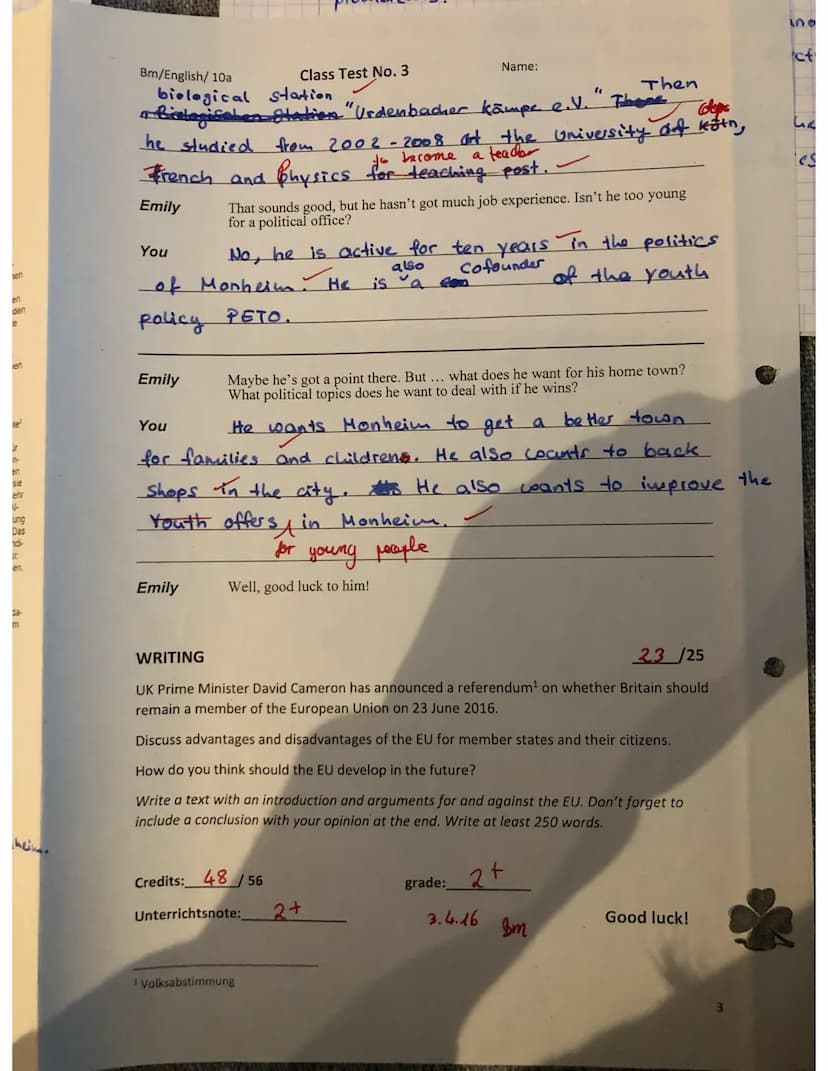 Bm/English/ 10a Class Test No. 3 Name:
biological station
Biologischen Station "Urdenbacher Kämpe e.V." There Then
he studied from 2002 - 2008 at the University of Köln,
to become a teacher
French and Physics for teaching post.
Emily That sounds good, but he hasn't got much job experience. Isn't he too young
for a political office?
You No, he is active for ten years in the politics
of Monheim. He is also a Cofounder of the youth
policy PETO.
Emily Maybe he's got a point there. But … what does he want for his home town?
What political topics does he want to deal with if he wins?
You He wants Monheim to get a better town
for families and childrens. He also wants to back
shops in the city. He also wants to improve the
Youth offers in Monheim.
for young people
Emily Well, good luck to him!
WRITING 23 /25
UK Prime Minister David Cameron has announced a referendum¹ on whether Britain should
remain a member of the European Union on 23 June 2016.
Discuss advantages and disadvantages of the EU for member states and their citizens.
How do you think should the EU develop in the future?
Write a text with an introduction and arguments for and against the EU. Don't forget to
include a conclusion with your opinion at the end. Write at least 250 words.
Credits: 48 / 56 grade: 2+
Unterrichtsnote: 2+ 3.4.16 Bm Good luck!
¹ Volksabstimmung
3